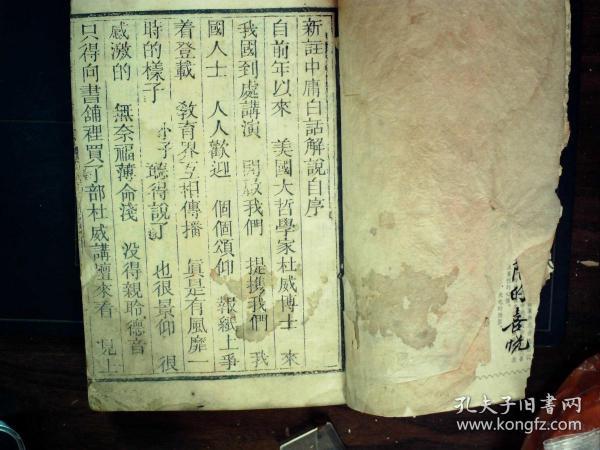 新註中庸白話解說自序
自前年以來 美國大哲學家杜威博士 來
我國到處講演 開啟我們 提携我們 我
國人士 人人歡迎 個個頌仰 報紙上爭
着登載 敎育界互相傳播 眞是有風靡一
時的樣子 小子聽得說了 也很景仰 很
感激的 無奈福薄命淺 没得親聆德音
只得向書舖裡買了部杜威講壇來看 見上
的喜悅
孔夫子旧书网
www.kongfz.com